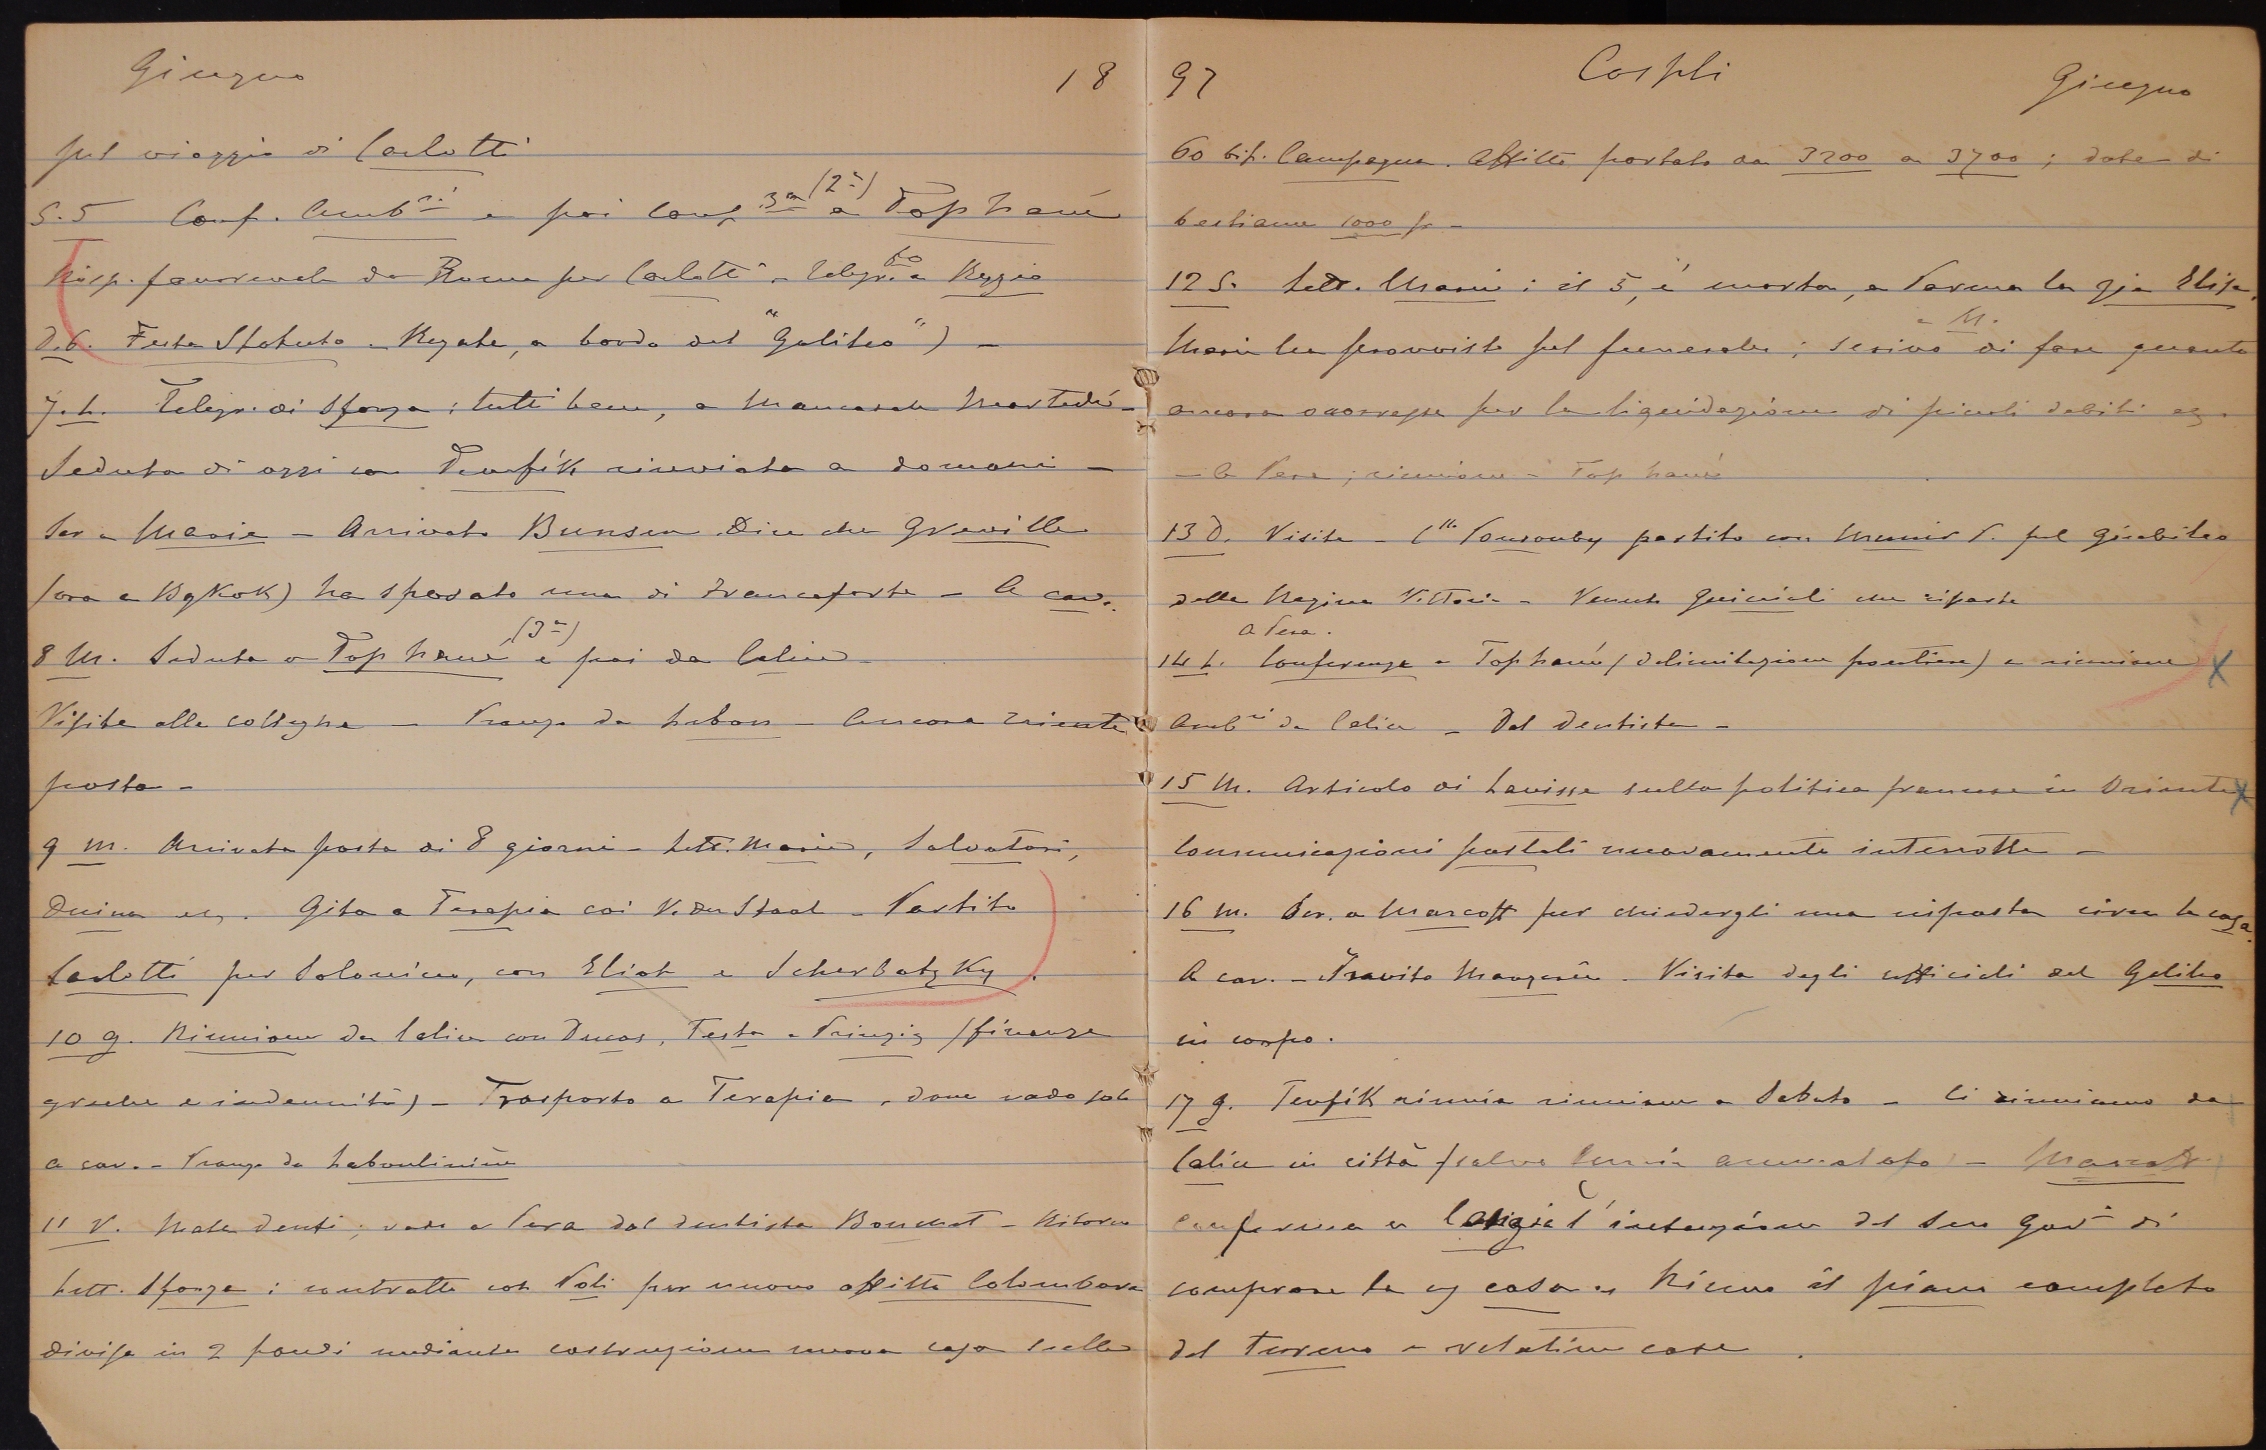 Giugno 18
sul viaggio di Carlotti
S. 5 Conf. Amb.ri e poi conf 3a (2a) a Top hané
Risp. favorevole da Roma per Carlotti - Telegr. a Reggio
D. 6. Festa Statuto. Regate, a bordo del "Galileo") -
7. L. Telegr. di Sforza: tutti bene, a Mancasale Martedì -
Seduta di oggi con Tewfik rinviata a domani -
Scr a Maria - Arrivato Bunsen. Dice che Greville
(ora a BgKoK) ha sposato una di Francoforte - A cav.
8 M. Seduta a Top hané (3a) e poi da Calice -
Visite alle colleghe - Pranzo da - Ancora niente
posta -
9 M. Arrivata posta di 8 giorni - Lett. Maria, Salvatori,
etc. Gita a Terapia coi V. der Staal - Partito
Carlotti per Salonicco, con Eliot e Scherbatzky.
10 G. Riunione da Calice con Ducas, Testa e (finanze
greche e indennità) - Trasporto a Terapia, dove vado solo
a cav. - Pranzo da Laboulinière
11 V. Male denti; vado a Pera dal dentista - Ritorno
Lett. Sforza: contratto con Poli per nuovo affitto Colombara
divisa in 2 fondi mediante costruzione nuova casa sulle
97 Cospli Giugno
60 bif. Campagna. Affitto portato da 3200 a 3700; dote di
bestiame 1000 fr -
12 S. Lett. Maria: il 5, è morta, a Parma la zia Elisa.
Maria ha provvisto pel funerale; scrivo a M. di fare quanto
ancora occorresse per la liquidazione di piccoli debiti ec.
- A Pera; riunione a Top hané
13 D. Visite - Ponsonby partito con Munir P. pel giubileo
della Regina Vittoria - Venuto che riparte
A Pera.
14 L. Conferenza a Top hané (delimitazione frontiera) e riunione
Amb.ri da Calice - Dal dentista -
15 M. Articolo di Lavisse sulla politica francese in Oriente
Comunicazioni postali nuovamente interrotte -
16 M. Scr. a Marcoff per chiedergli una risposta circa la casa.
A cav. - Invito - Visita degli ufficiali del Galileo
in corpo.
17 G. Tewfik rinvia riunione a Sabato - Ci riuniamo da
Calice in città (salvo ammalato) -
conferma a l'intenzione del suo Gov.o di
comprare la casa e Ricevo il piano completo
del terreno e relative case.